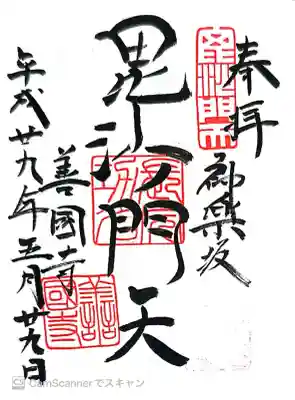 奉拝
神樂坂
毘沙門天
善國寺
平成廿九年五月廿九日
CamScannerでスキャン